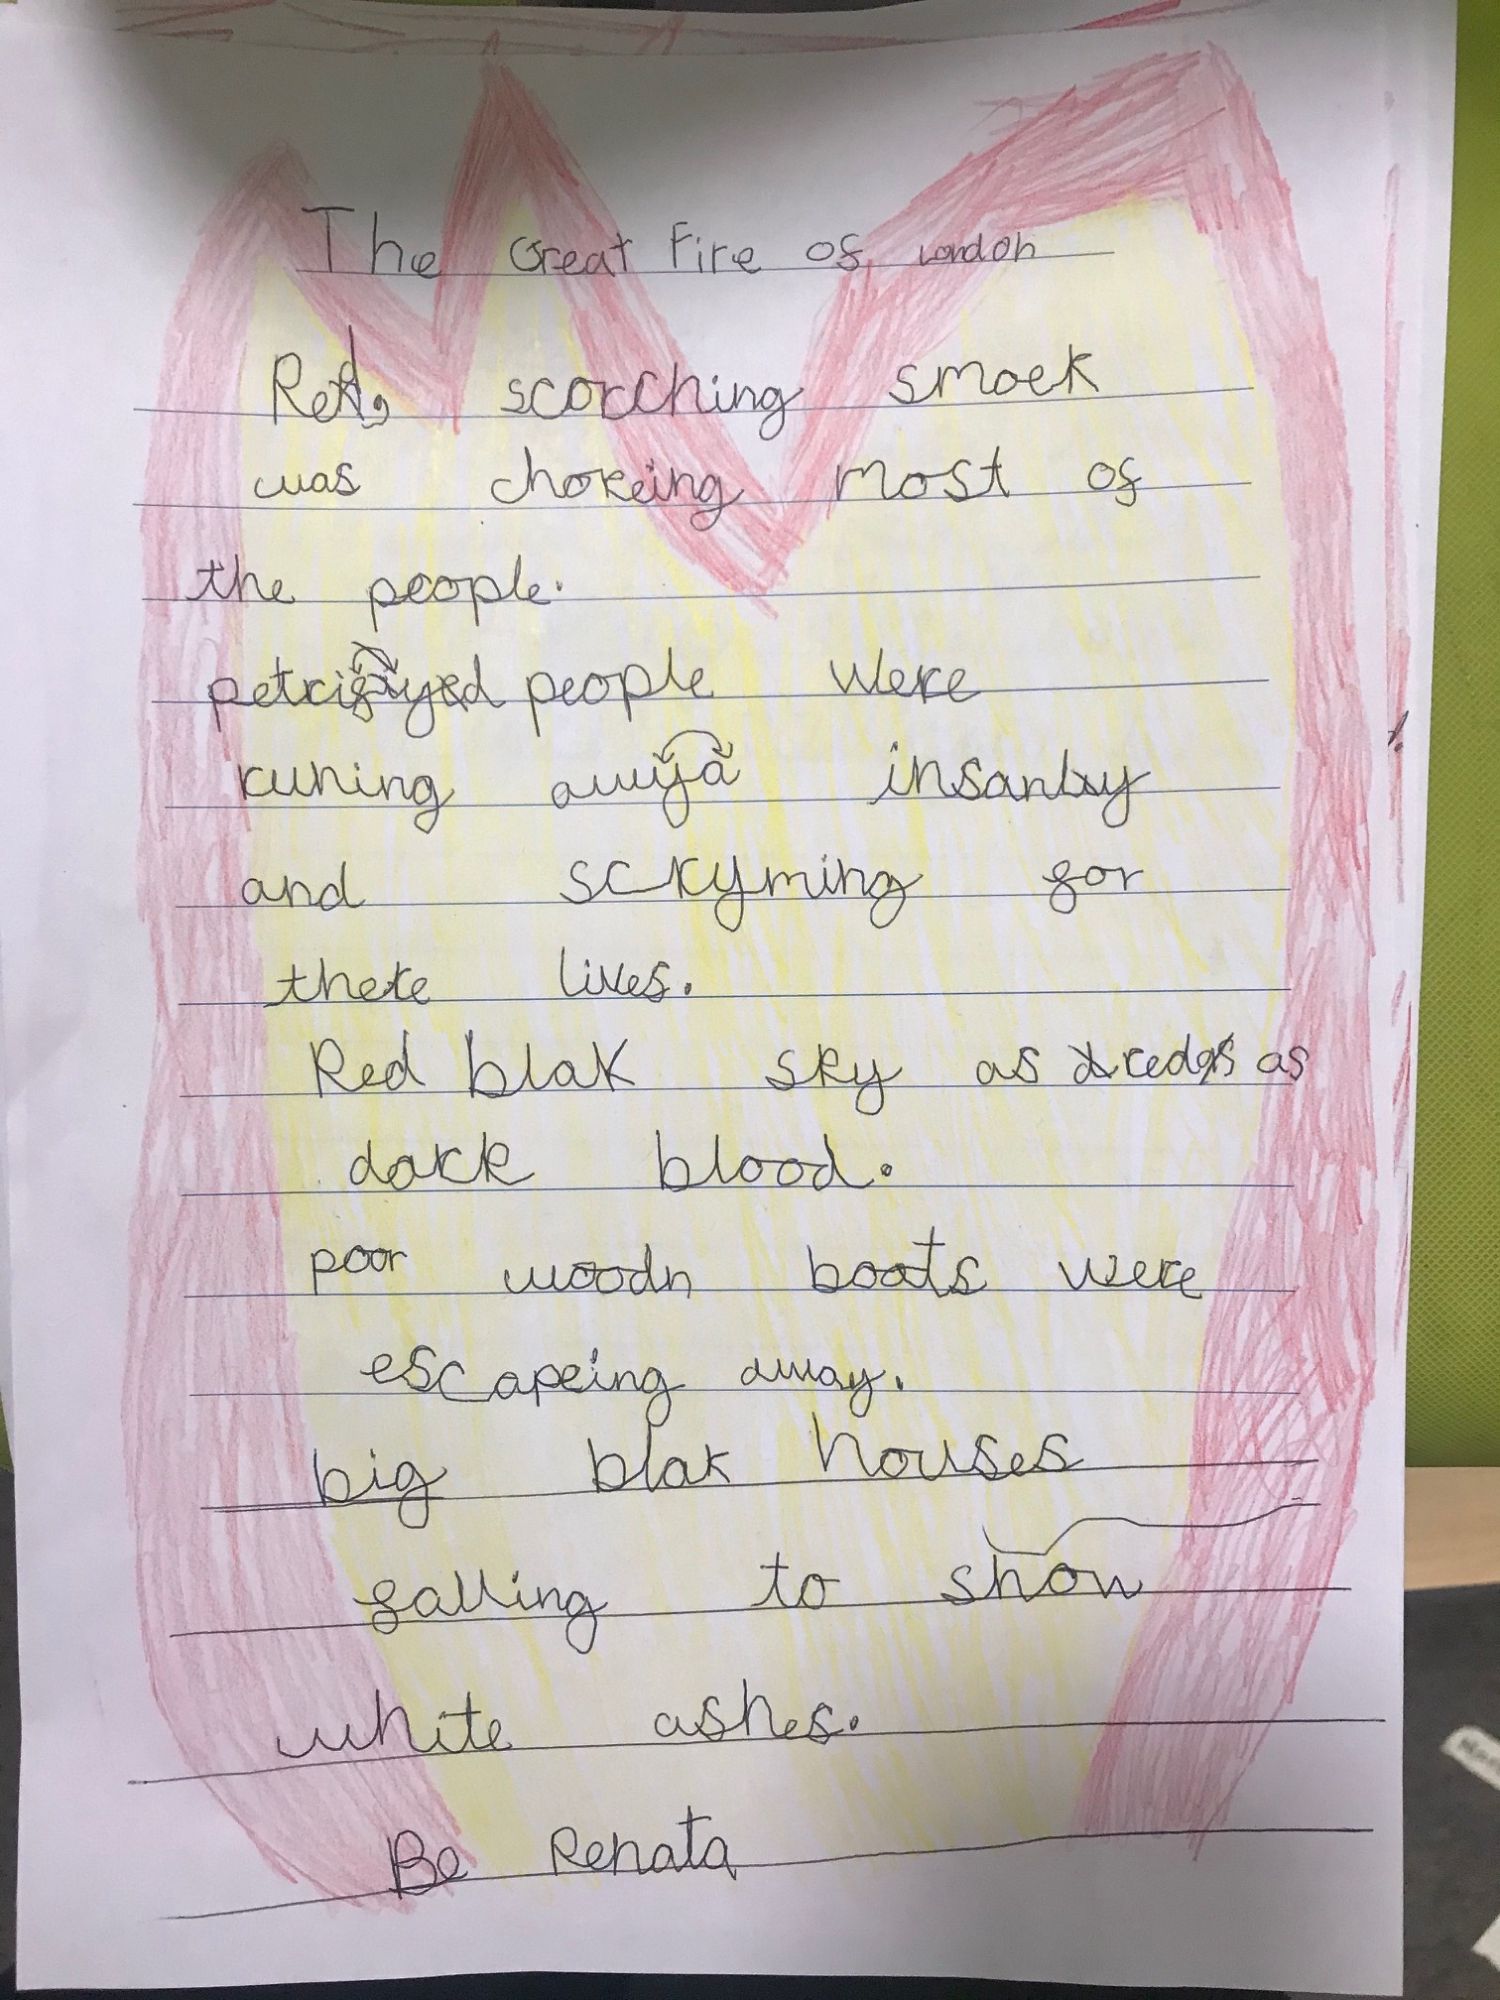 The Great Fire of London
Red, scorching smoek
was chokeing most of
the people.
people were
runing awya insanly
and scryming for
there lives.
Red blak sky as red as
dark blood.
poor woodn boats were
escapeing away.
big blak houses
falling to show
white ashes.
Be Renata